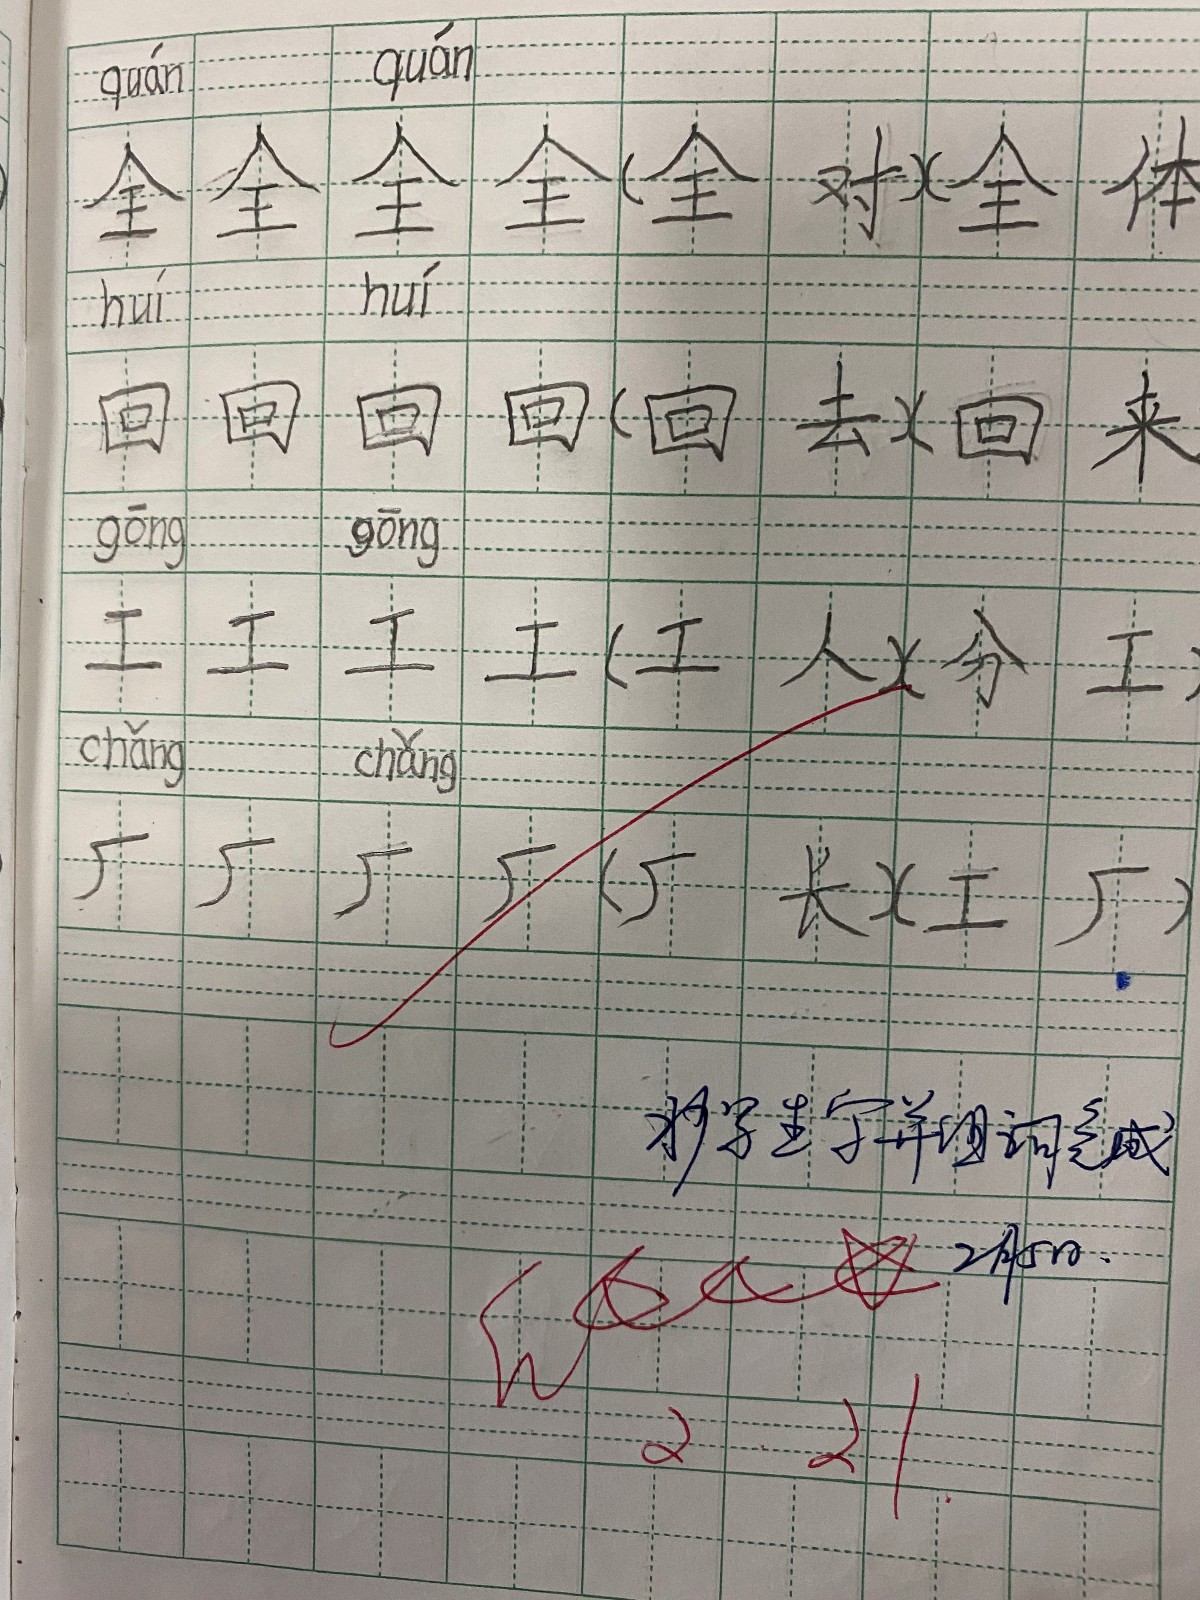 quán quán
全 全 全 全 (全 对)(全 体
huí huí
回 回 回 回 (回 去)(回 来
gōng gōng
工 工 工 工 (工 人)(分 工)
chǎng chǎng
厂 厂 厂 厂 (厂 长)(工 厂)
学生字并组词完成
2月5日.
2 21